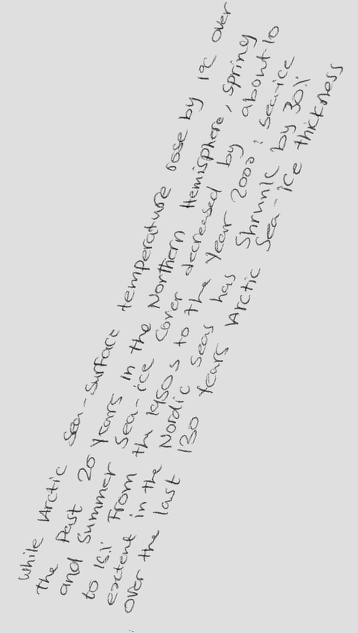 While Arctic Sea-Surface temperature rose by 1°C over
the Past 20 Years in the Northern Hemisphere, Spring
and Summer Sea-ice Cover decreased by about 10
to 15% From the 1950s to the Year 2000; Sea-ice
extent in the Nordic Seas has Shrunk by 30%
over the last 130 Years Arctic Sea-ice thickness